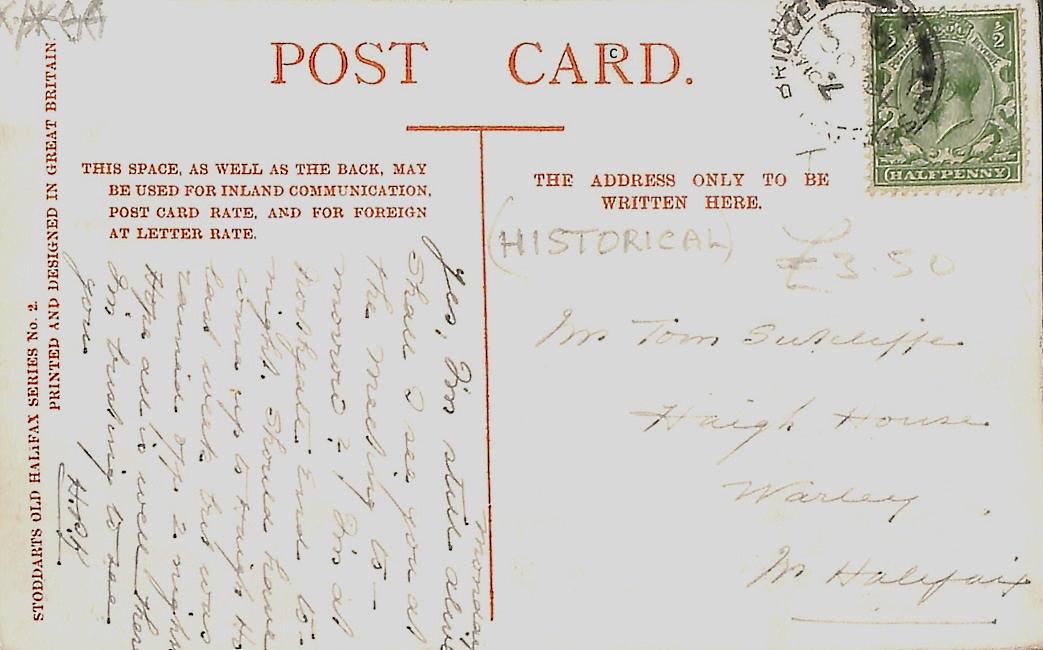 POST CARD.
C
BRIDGE
½ ½
HALFPENNY
STODDARTS OLD HALIFAX SERIES No. 2.
PRINTED AND DESIGNED IN GREAT BRITAIN.
THIS SPACE, AS WELL AS THE BACK, MAY
BE USED FOR INLAND COMMUNICATION,
POST CARD RATE, AND FOR FOREIGN
AT LETTER RATE.
THE ADDRESS ONLY TO BE
WRITTEN HERE.
(HISTORICAL)
£3.50
Mr Tom Sutcliffe
Haigh House
Warley
Nr Halifax
Monday
Yes, I'm still alive
Shall I see you at
the meeting to-
morrow? I'm at
Northgate End to-
night. Should have
come up to Haigh Ho
last week but was
rained off 2 nights
Hope all is well there
I'm trusting to see
you.